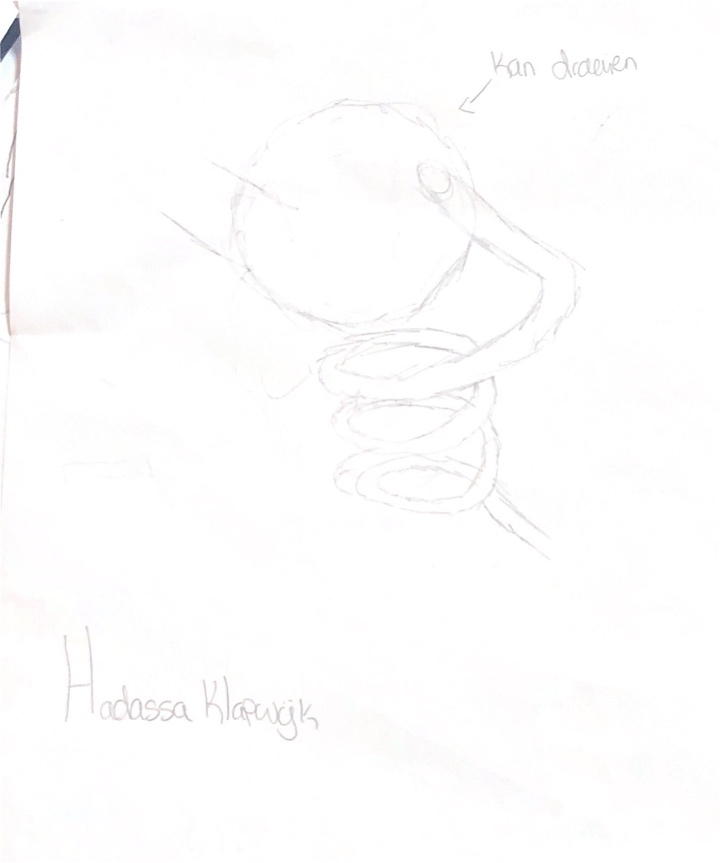 Kan draeien
Hadassa Klapwijk